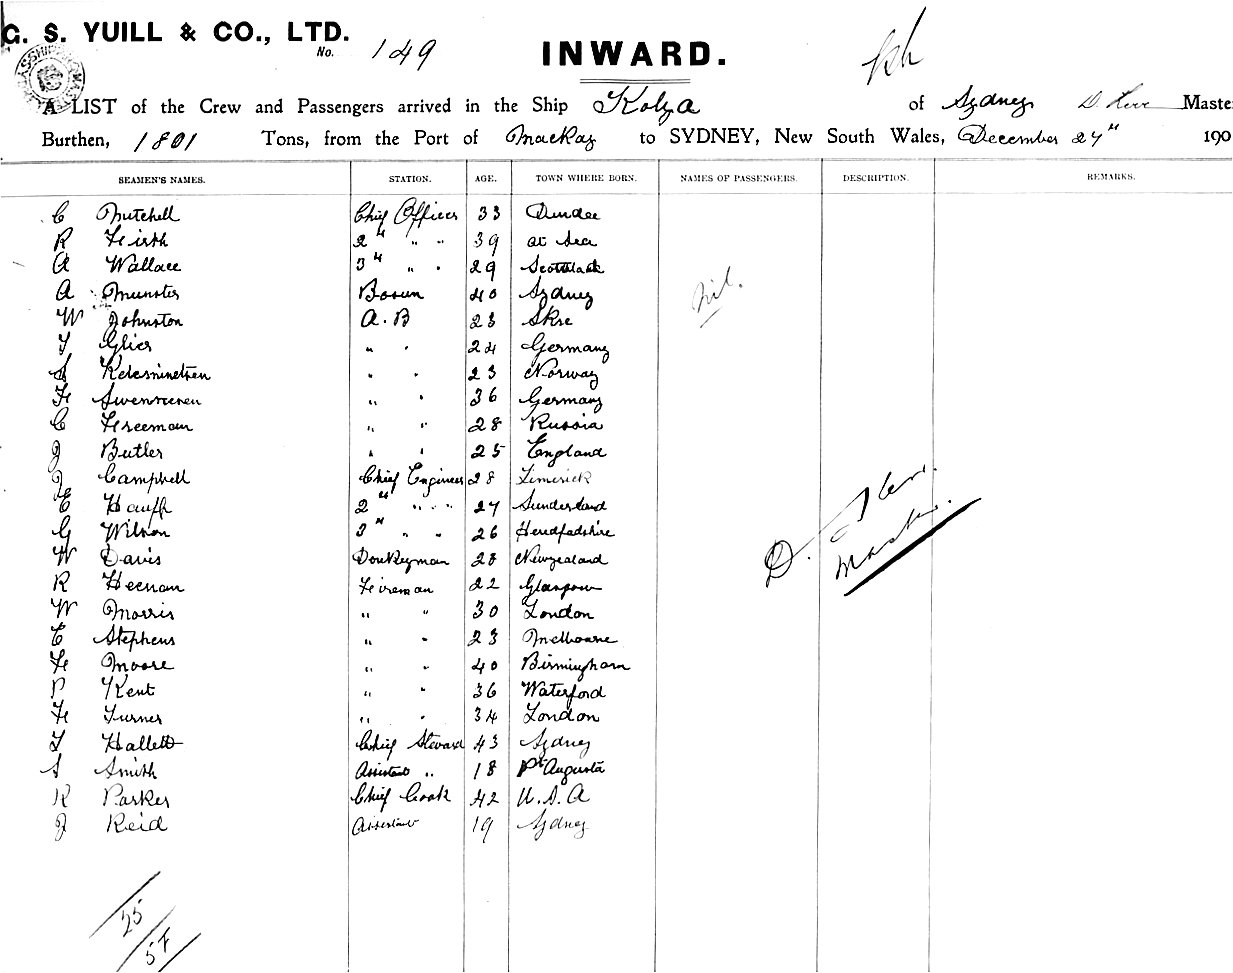 G. S. YUILL & CO., LTD.
No. 149
INWARD.
A LIST of the Crew and Passengers arrived in the Ship Kolya of Sydney D. Kerr Master
Burthen, 1801 Tons, from the Port of Mackay to SYDNEY, New South Wales, December 27th 190
SEAMEN'S NAMES. STATION. AGE. TOWN WHERE BORN. NAMES OF PASSENGERS. DESCRIPTION. REMARKS.
C Mitchell Chief Officer 33 Dundee
R Firth 2nd " " 39 at Sea
A Wallace 3rd " " 29
A Munster Bosun 40 Sydney
nil.
W Johnston A.B 23 Skye
Glies " " 24 Germany
" " 23 Norway
F " " 36 Germany
C Freeman " " 28 Russia
J Butler " " 25 England
J Campbell Chief Engineer 28 Limerick
E Hauff 2nd " " 27 Sunderland
G Wilson 3rd " " 26
D. Kerr
Master.
W Davis Donkeyman 28 Newzealand
R Heenan Fireman 22 Glasgow
W Morris " " 30 London
E Stephens " " 23 Melbourne
F Moore " " 40 Birmingham
P Kent " " 36 Waterford
F Turner " " 34 London
T Hallett Chief Steward 43 Sydney
S Smith Assistant " 18 Pt Augusta
R Parker Chief Cook 42 U.S.A
J Reid Assistant 19 Sydney
25